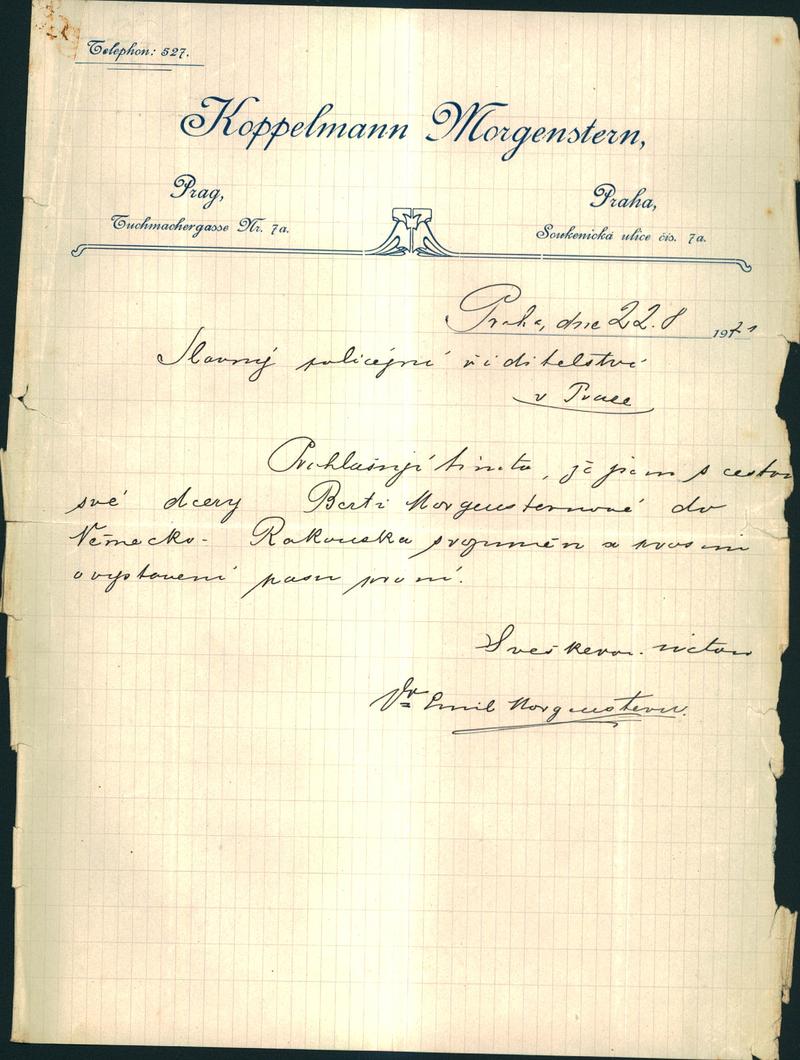 Telephon: 527.
Koppelmann Morgenstern,
Prag,
Praha,
Tuchmachergasse Nr. 7a.
Soukenická ulice čís. 7a.
Praha, dne 22.8 1921
Slavný policejní ředitelství
v Praze
Prohlašuji tímto, že jsem s cestou
své dcery Berti Morgensternové do
Německo- Rakouska srozuměn a prosím
o vystavení pasu pro ni.
S veškerou úctou
Dr Emil Morgenstern.